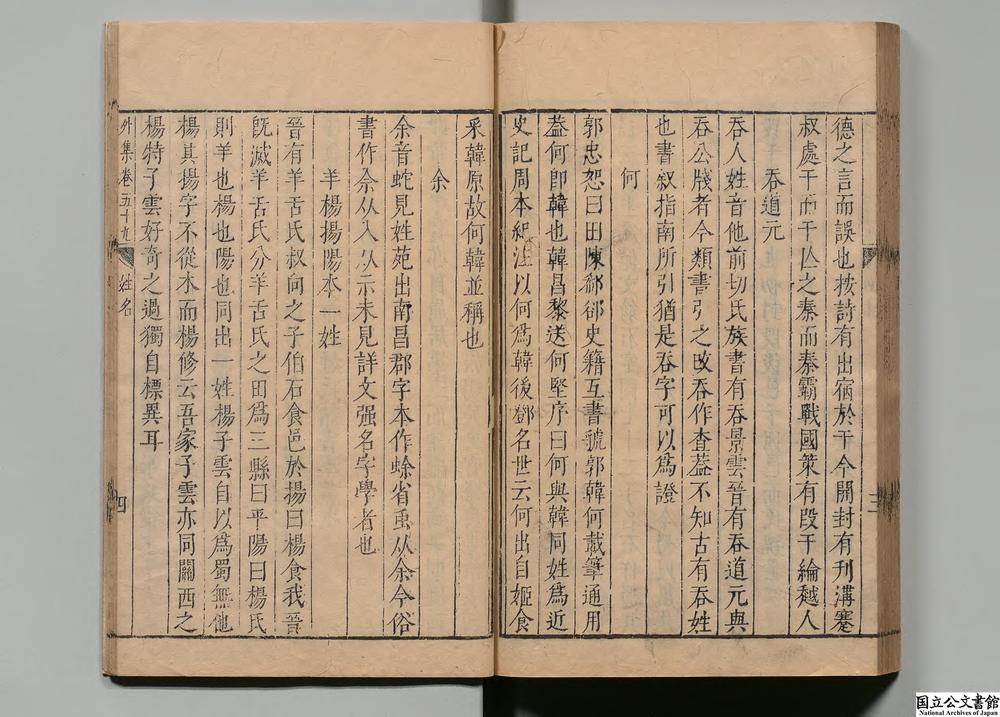 德之言而誤也按詩有出宿於干今開封有刋溝蹇
叔處干而干亾之秦而秦霸戰國策有段干綸越人
吞道元
吞人姓音他前切氏族書有吞景雲晉有吞道元與
吞公牋者今類書引之改吞作查葢不知古有吞姓
也書叙指南所引猶是吞字可以爲證
何
郭忠恕曰田陳郗郤史籍互書虢郭韓何載筆通用
葢何卽韓也韓昌黎送何堅序曰何與韓同姓爲近
史記周本紀注以何爲韓後鄧名世云何出自姬食
采韓原故何韓並稱也
余
余音蛇見姓苑出南昌郡字本作蜍省䖝从余今俗
書作佘从入从示未見詳文强名字學者也
羊楊揚陽本一姓
晉有羊舌氏叔向之子伯石食邑於揚曰楊食我晉
旣滅羊舌氏分羊舌氏之田爲三縣曰平陽曰楊氏
則羊也楊也陽也同出一姓楊子雲自以爲蜀無他
楊其揚字不從木而楊修云吾家子雲亦同關西之
楊特子雲好奇之過獨自標異耳
外集卷二五十九
姓名
三
四
国立公文書館
National Archives of Japan